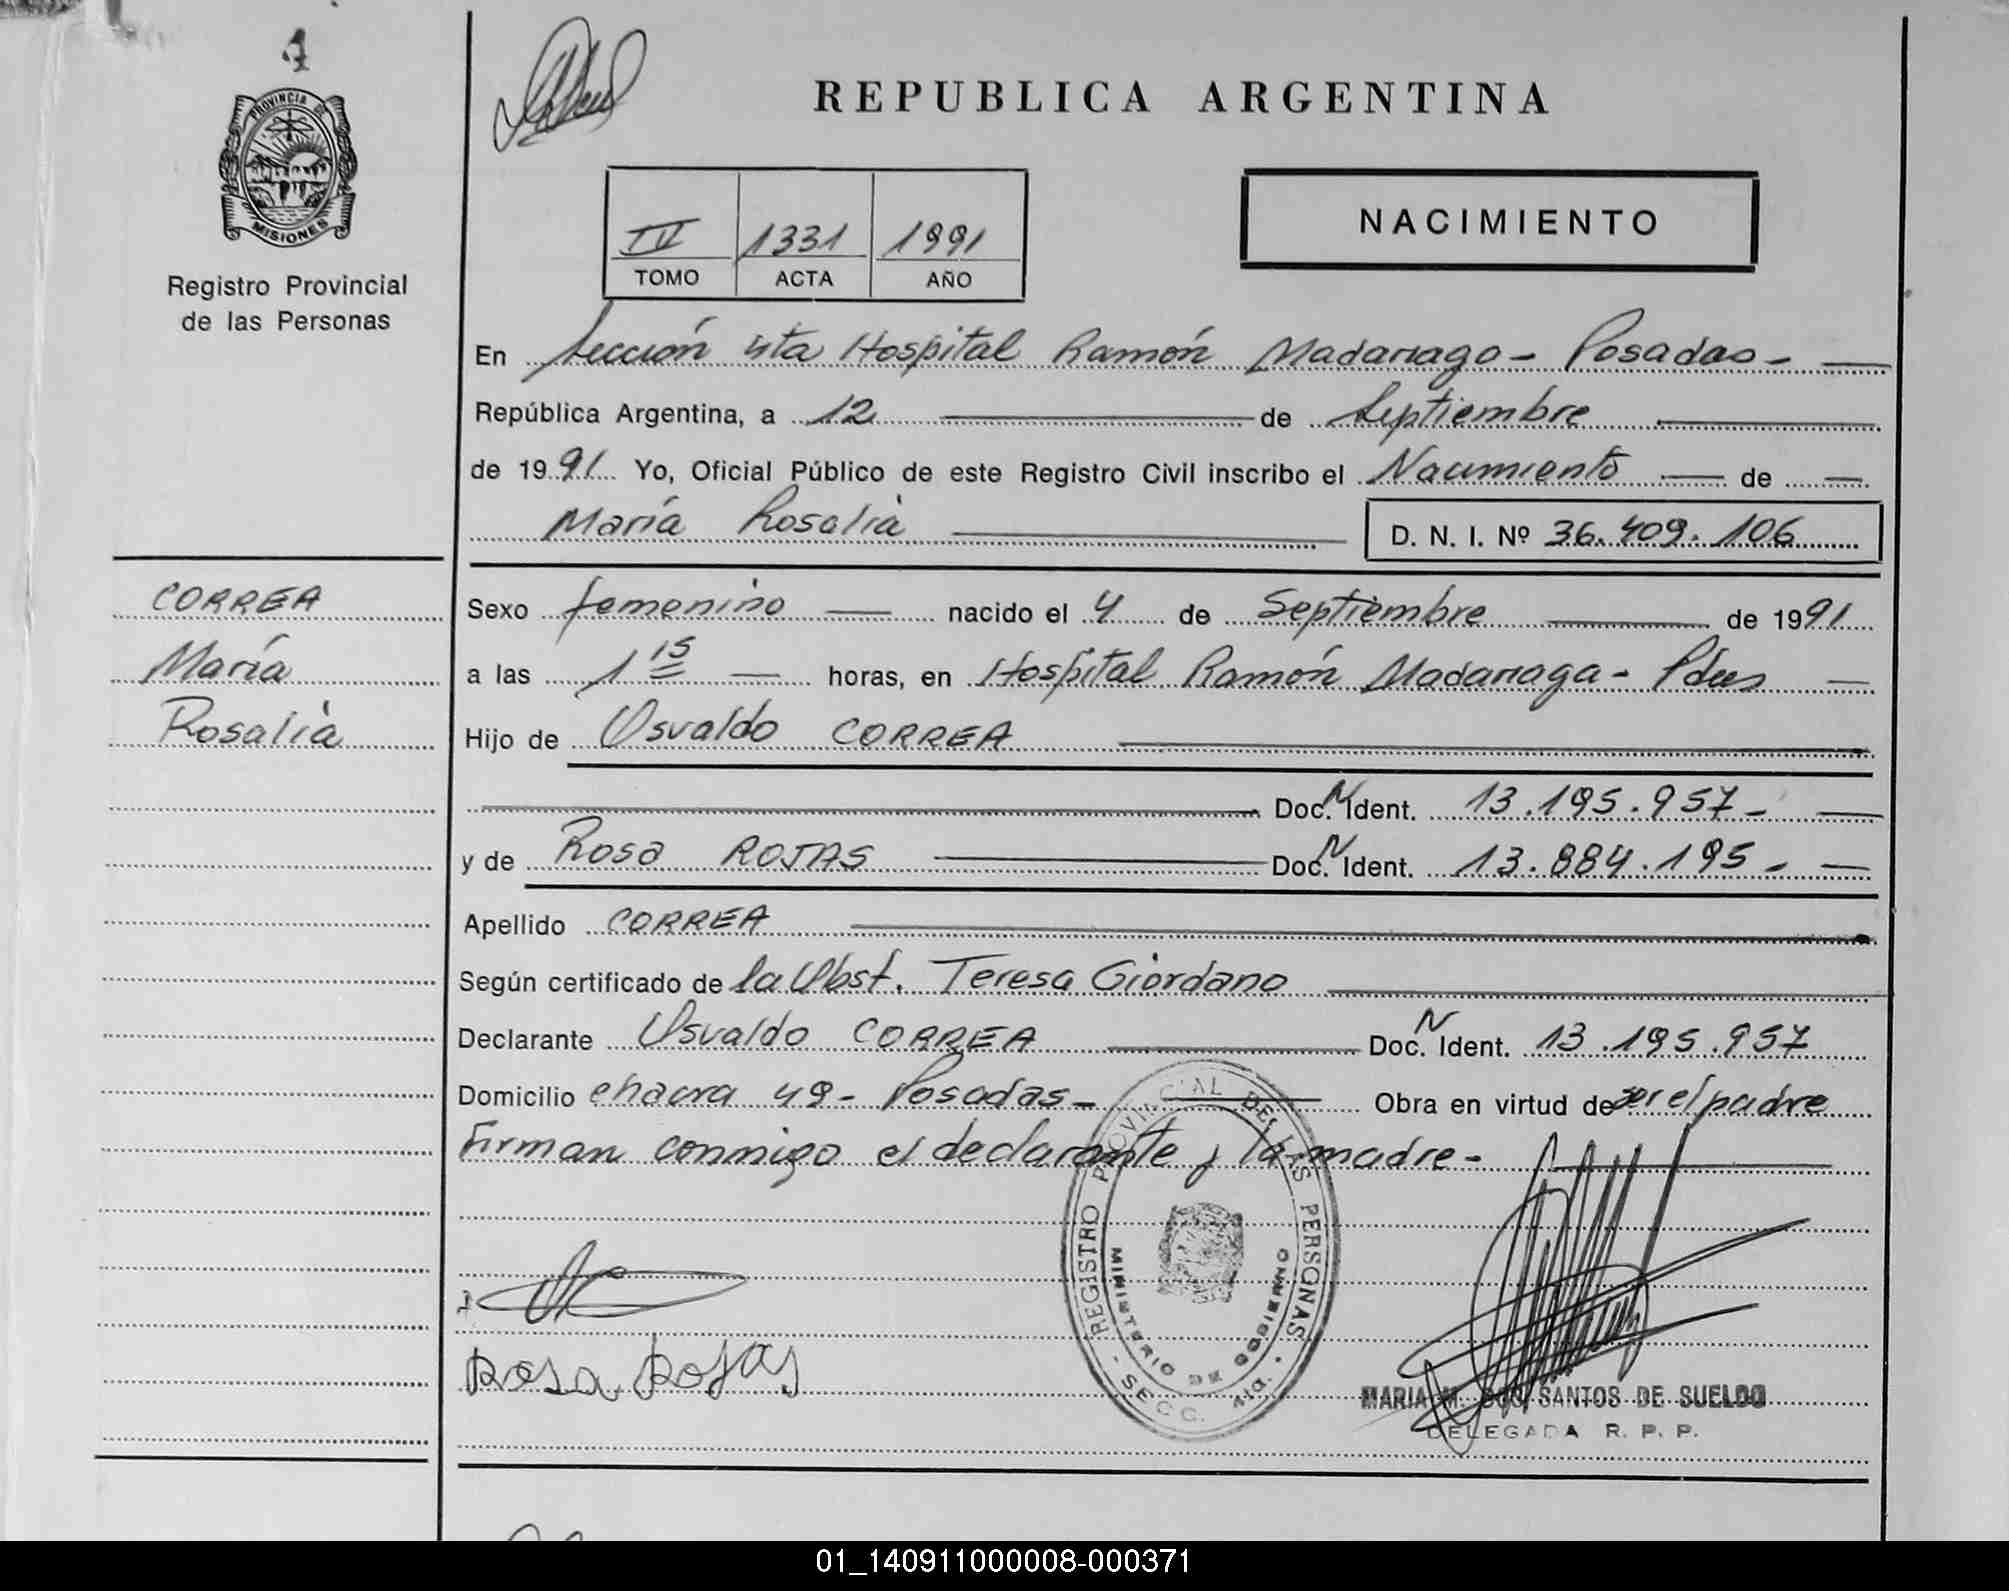 PROVINCIA DE
MISIONES
Registro Provincial
de las Personas
REPUBLICA ARGENTINA
NACIMIENTO
IV 1331 1991
TOMO ACTA AÑO
En Sección 4ta Hospital Ramón Madariaga - Posadas -
República Argentina, a 12 de Septiembre
de 1991 Yo, Oficial Público de este Registro Civil inscribo el Nacimiento de
María Rosalia D. N. I. Nº 36.409.106
CORREA
María
Rosalia
Sexo femenino nacido el 4 de Septiembre de 1991
a las 1 15 horas, en Hospital Ramón Madariaga - Pdas
Hijo de Osvaldo CORREA
Doc. N Ident. 13.195.957 -
y de Rosa ROJAS Doc. N Ident. 13.884.195 -
Apellido CORREA
Según certificado de la Obst. Teresa Giordano
Declarante Osvaldo CORREA Doc. N Ident. 13.195.957
Domicilio chacra 49 - Posadas - Obra en virtud de ser el padre
Firman conmigo el declarante y la madre -
REGISTRO PROVINCIAL DE LAS PERSONAS
MINISTERIO DE GOBIERNO
- SECC. 4ta. -
Rosa Rojas
MARIA M. DOS SANTOS DE SUELDO
DELEGADA R. P. P.
01_140911000008-000371